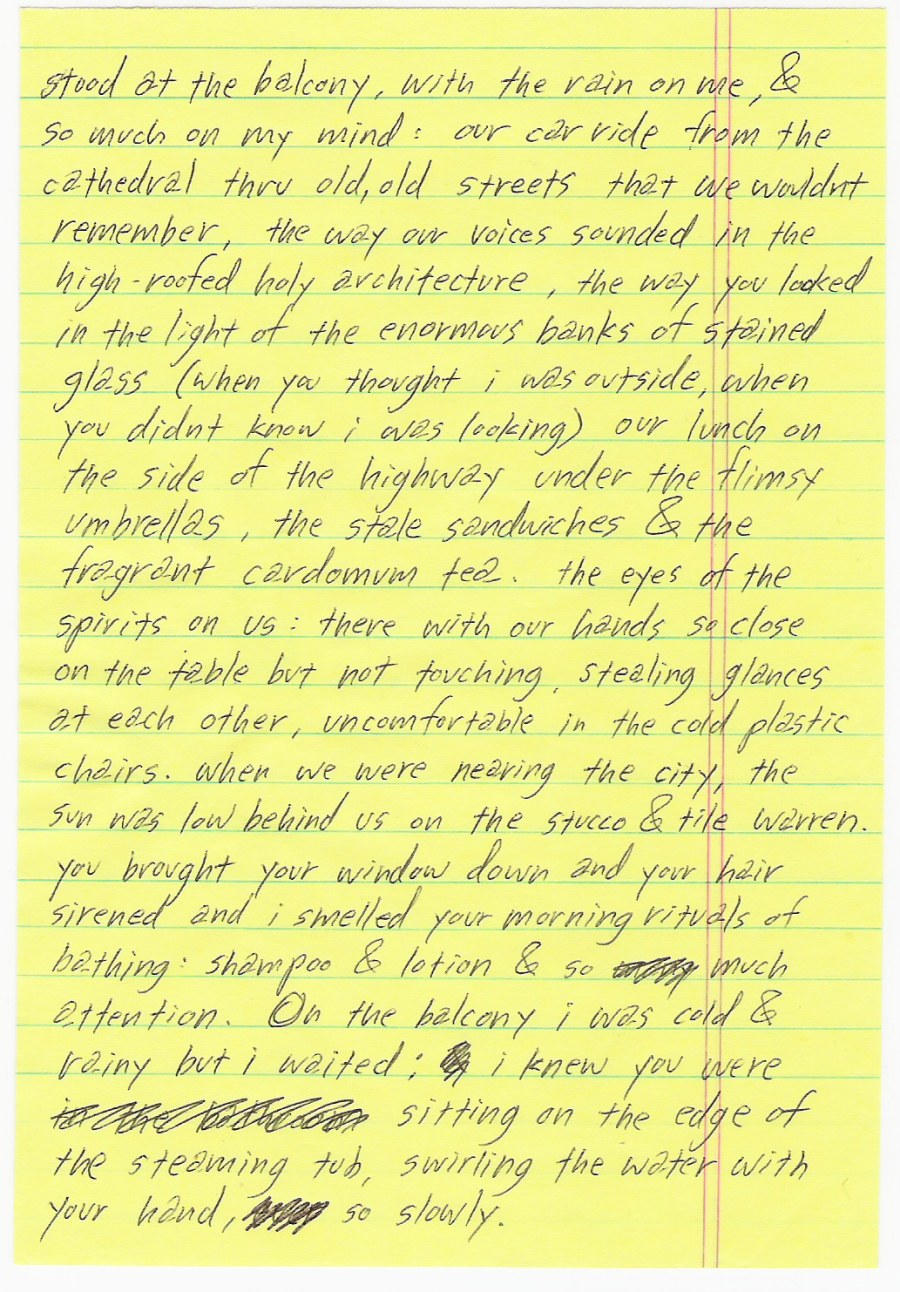 stood at the balcony, with the rain on me, &
so much on my mind: our car ride from the
cathedral thru old, old streets that we wouldnt
remember, the way our voices sounded in the
high-roofed holy architecture, the way you looked
in the light of the enormous banks of stained
glass (when you thought i was outside, when
you didnt know i was looking) our lunch on
the side of the highway under the flimsy
umbrellas, the stale sandwiches & the
fragrant cardomum tea. the eyes of the
spirits on us: there with our hands so close
on the table but not touching, stealing glances
at each other, uncomfortable in the cold plastic
chairs. when we were nearing the city, the
sun was low behind us on the stucco & tile warren.
you brought your window down and your hair
sirened and i smelled your morning rituals of
bathing: shampoo & lotion & so much
attention. On the balcony i was cold &
rainy but i waited; i knew you were
sitting on the edge of
the steaming tub, swirling the water with
your hand, so slowly.